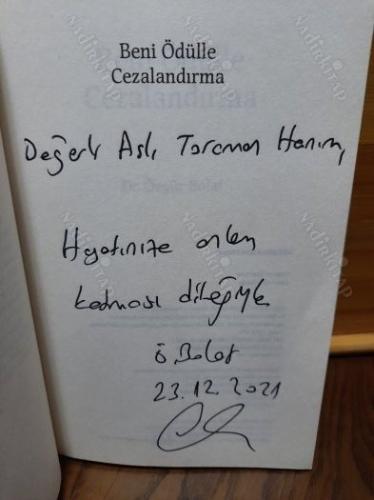 Beni Ödülle
Cezalandırma
Değerli Aslı Taraman Hanım,
Hayatınıza anlam
katması dileğiyle
Ö. Bolat
23.12.2021
NADİRKİTAP